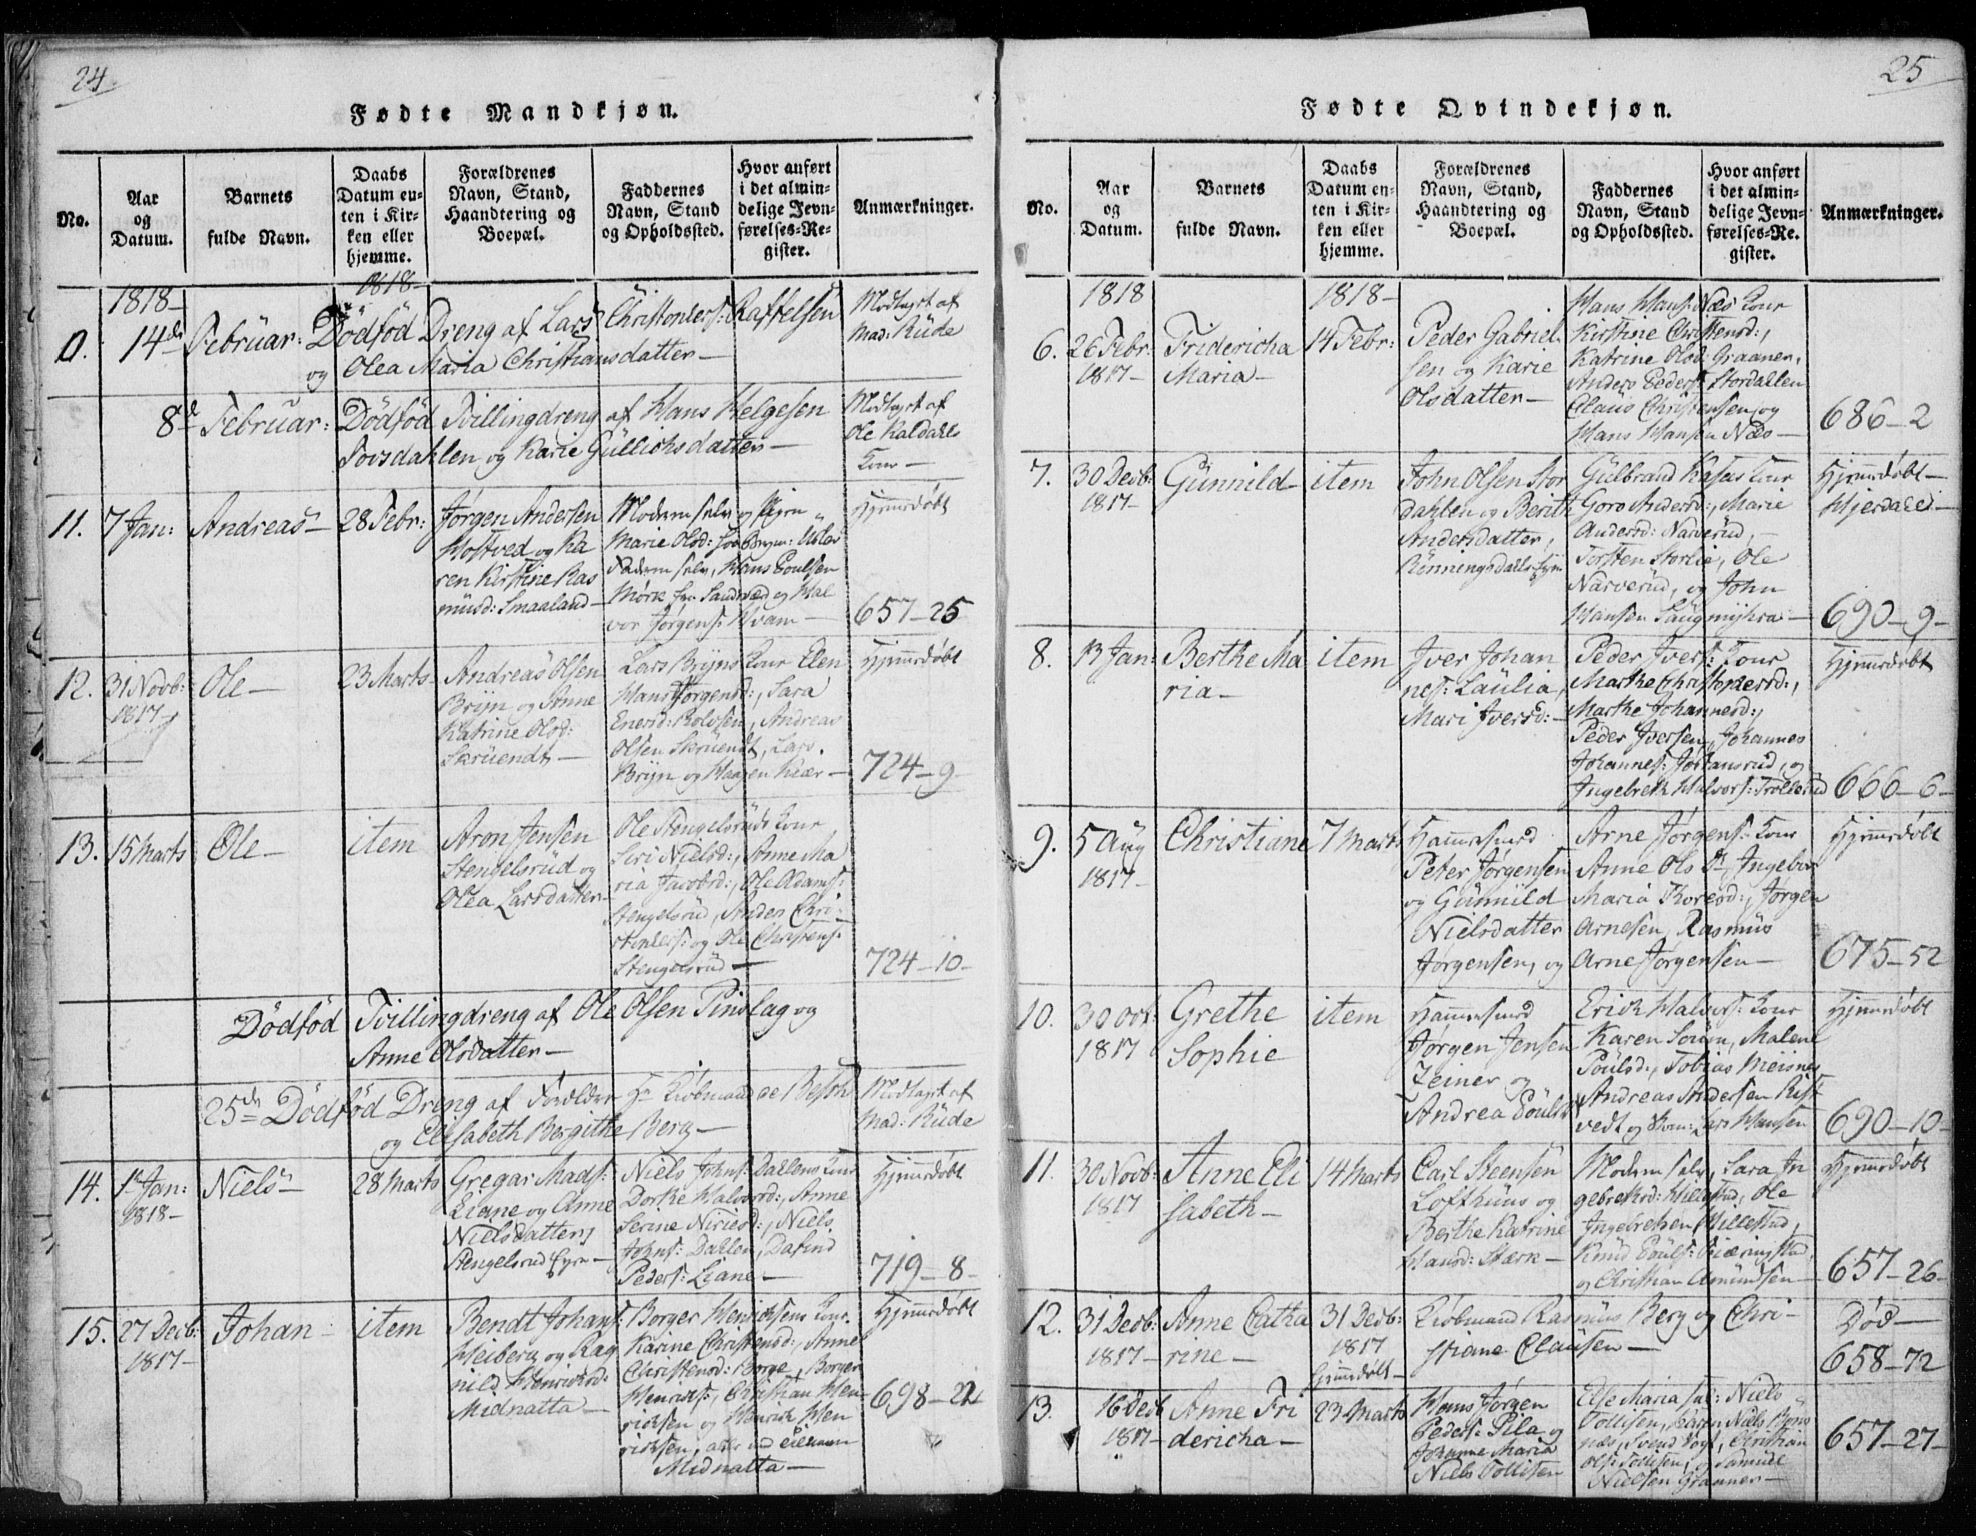 24
Fødte Mandkjøn.
No.
Aar
og
Datum.
Barnets
fulde Navn.
Daabs
Datum en-
ten i Kir-
ken eller
hjemme.
Forældrenes
Navn, Stand,
Haandtering og
Boepæl.
Faddernes
Navn, Stand
og Opholdssted.
Hvor anført
i det almin-
delige Jevn-
førelses-Re-
gister.
Anmærkninger.
1818-
1818-
0.
14de
Februar:
Dödföd Dreng af Lars Christophers: Raffelsen
og Olea Maria Christiansdatter-
Modtaget af
Mad: Rüde
8de Februar:
Dödföd Tvillingdreng af Hans Helgesen
Tovsdahlen og Karie Güllichsdatter-
Modtaget af
Ole Kaldahls
Kone-
11.
7 Jan:
Andreas-
28 Febr:
Jørgen Andersen
Hostved og Ka
ren Kirstine Ras
müsd: Smaaland-
Moderen selv og
Marie Olsd:
Faderen selv, Hans Poulsen
Mørk
vor Jørgens: Hvam-
Hjemmedøbt
657-25
12.
31 Novb:
1817
Ole-
23 Marts
Andreas Olsen
Brijn og Anne
Katrine Olsd:
Skrüendt-
Lars Brijns Kone Elen
Hans Jørgensd:, Sara
Andreas
Olsen Skrüendt, Lars
Brijn og Haagen Kiær-
Hjemmedøbt
724-9
13.
15 Marts
Ole-
item
Aron Jensen
Stengelsrüd og
Olea Larsdatter-
Ole Stengelsrüds Kone
Siri Nielsd:, Anne Ma
ria Jacobsd:, Ole Adams:
Stengelsrüd, Anders Chri-
stophers: og Ole Christens:
Stengelsrüd-
724-10-
Dödföd Tvillingdreng af Ole Olsen Pinslag og
Anne Olsdatter-
25de Dödföd Dreng af Forældre Hr Kiøbmand
og Elisabeth Birgithe Berg-
Modtaget af
Mad: Rüde
14.
1 Jan:
1818-
Niels-
28 Marts
Gregar Mads:
Liane og Anne
Nielsdatter,
Stengelsrud Eye-
Niels Johns: Dahlens Kone
Dorthe Halvorsd:, Anne
Serine Niriesd:, Niels
Johns: Dahlen,
Peders: Liane-
Hjemmedøbt
719-8-
15.
27 Decb:
1817-
Johan-
item
Bendt Johans:
Heiberg og Rag
nild Henricksd:
Midnatta-
Borger Henricksens Kone
Karine Christensd:, Anne
Christensd: Borge, Borger
Henricks:, Christian Hen
ricksen og Henrich Hen
ricksen, alle
Midnatta-
Hjemmedøbt
698-22
25
Fødte Qvindekjøn.
No.
Aar
og
Datum.
Barnets
fulde Navn.
Daabs
Datum en-
ten i Kir-
ken eller
hjemme.
Forældrenes
Navn, Stand,
Haandtering og
Boepæl.
Faddernes
Navn, Stand
og Opholdssted.
Hvor anført
i det almin-
delige Jevn-
førelses-Re-
gister.
Anmærkninger.
1818
1818-
6.
26 Febr:
1817-
Fridericha
Maria-
14 Febr:
Peder Gabriel
sen og Karie
Olsdatter-
Hans Hans: Næs Kone
Kirstine Christensd:,
Katrine Olsd: Graanen,
Anders Peders: Stordahlen
Claüs Christensen, og
Hans Hansen Næs-
686-2
7.
30 Decb:
1817-
Günnild-
item
John Olsen Stor
dahlen og Berith
Andersdatter,
Rönningsdals Eye
Gülbrand Kasas Kone
Goro Andersd:, Marie
Andersd: Narverüd,
Torsten Storlie, Ole
Narverüd, og John
Hansen Saugmyhra-
Hjemmedøbt-
Hjerdahl-
690-9-
8.
13 Jan:
Berthe Ma
ria-
item
Iver Johan
nes: Laülia,
Mari Iversd:-
Peder Ivers: Kone
Marthe Christophersd:,
Marthe Johannesd:,
Peder Iversen, Johannes
Johannes: Johansrud, og
Ingebreth Halvors: Trollerud
Hjemmedøbt
666-6-
9.
5 Aug
1817-
Christiane
7 Marts
Hammersmed
Peter Jørgensen
og Günnild
Nielsdatter
Arne Jørgens: Kone
Anne Ols Dr, Ingebor
Maria Thoresd:, Jørgen
Arnesen, Rasmüs
Jørgensen, og Arne Jørgensen-
Hjemmedøbt
675-52
10.
30 Oct:
1817
Grethe
Sophie
item
Hammersmed
Jørgen Jensen
Zeiner og
Andrea Poüls
Erick Halvors: Kone
Karen Sörün, Malene
Poülsd:, Tobias Meisner
Andreas Andersen Rist
vedt og Lars Hansen
Hjemmedøbt
690-10-
11.
30 Novb:
1817
Anne Eli
sabeth-
14 Marts
Carl Steensen
Lofthüus og
Berthe Katrine
Hansd: Stærk-
Moderen selv, Sara In
gebrethsd: Hillestad, Ole
Ingebretsen Hillestad,
Knüd Poüls:
og Christian Amündsen-
Hjemmedøbt
657-26-
12.
31 Decb:
1817-
Anne Catha
rine-
31 Decb:
1817
Hjemmedøbt-
Kiøbmand Rasmüs Berg og Chri-
stiane Claüsen-
Död-
658-72
13.
16 Decb
1817-
Anne Fri
dericha-
23 Marts
Hans Jørgen
Peders: Pila og
Johanne Maria
Niels Tollisen
Else Maria Niels
Tollisen, Karen Niels
Svend Vogt, Christian
Ols: Tollisen, og Samuel
Nielsen Graanen-
657-27-